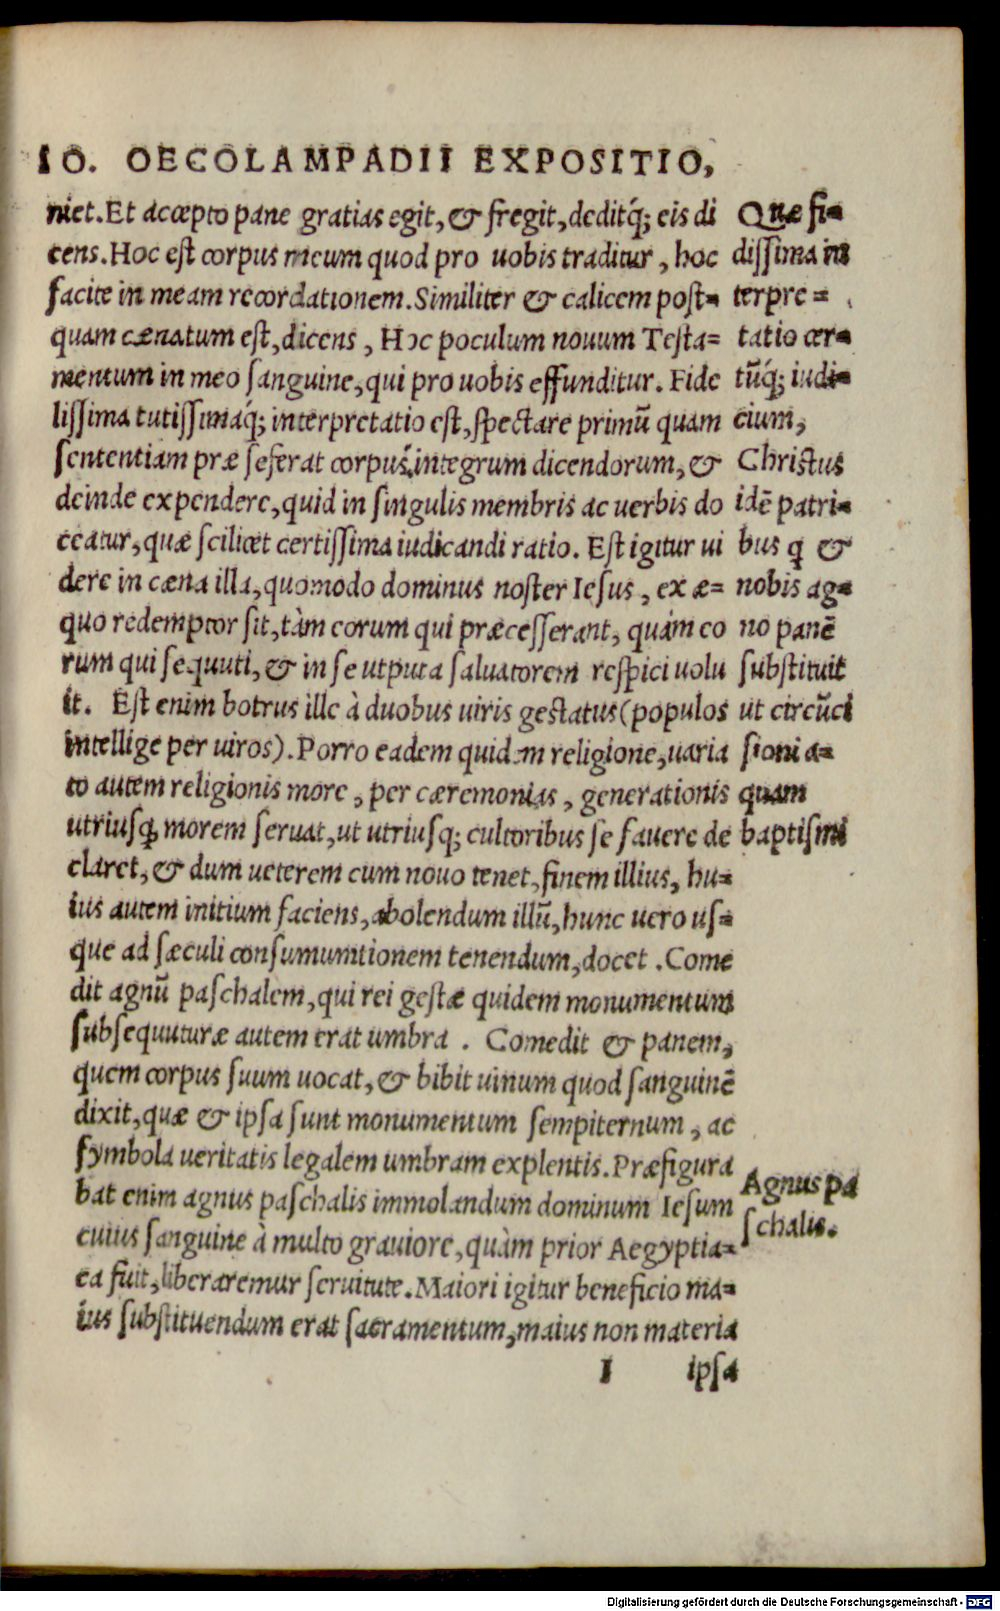 IO. OECOLAMPADII EXPOSITIO,
niet. Et accepto pane gratias egit, & fregit, deditq́; eis di
cens. Hoc est corpus meum quod pro uobis traditur, hoc
facite in meam recordationem. Similiter & calicem post=
quam cænatum est, dicens, Hoc poculum nouum Testa=
mentum in meo sanguine, qui pro uobis effunditur. Fide
lissima tutissimaq́; interpretatio est, spectare primũ quam
sententiam præ se ferat corpus integrum dicendorum, &
deinde expendere, quid in singulis membris ac uerbis do
ceatur, quæ scilicet certissima iudicandi ratio. Est igitur ui
dere in cæna illa, quomodo dominus noster Iesus, ex æ=
quo redemptor sit, tàm eorum qui præcesserant, quàm eo
rum qui sequuti, & in se utputa saluatorem respici uolu
it. Est enim botrus ille à duobus uiris gestatus (populos
intellige per uiros). Porro eadem quidem religione, uaria
to autem religionis more, per cæremonias, generationis
utriusq; morem seruat, ut utriusq; cultoribus se fauere de
claret, & dum ueterem cum nouo tenet, finem illius, hu=
ius autem initium faciens, abolendum illũ, hunc uero us=
que ad sæculi consumumtionem tenendum, docet. Come
dit agnũ paschalem, qui rei gestæ quidem monumentum
subsequuturæ autem erat umbra. Comedit & panem,
quem corpus suum uocat, & bibit uinum quod sanguinẽ
dixit, quæ & ipsa sunt monumentum sempiternum, ac
symbola ueritatis legalem umbram explentis. Præfigura
bat enim agnus paschalis immolandum dominum Iesum
cuius sanguine à multo grauiore, quàm prior Aegyptia=
ca fuit, liberaremur seruitute. Maiori igitur beneficio ma=
ius substituendum erat sacramentum, maius non materia
I ipsa
Quæ fi=
dissima in
terpre=
tatio cer=
tũq́; iudi=
cium,
Christus
idẽ patri=
bus q &
nobis ag=
no panẽ
substituit
ut circũci
sioni a=
quam
baptismi
Agnus pa
schalis.
Digitalisierung gefördert durch die Deutsche Forschungsgemeinschaft - DFG